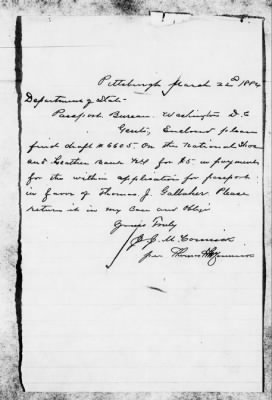 Pittsburgh March 22d 1884
Department of State
Passport Bureau. Washington D.C
Gents, Enclosed please
find draft # 6605. On the National Shoe
and Leather Bank NY for $5 in payment
for the within application for passport
in favor of Thomas J. Gallaher Please
return it in my care and Oblige
Yours Truly
J. J. McCormick
per Thomas